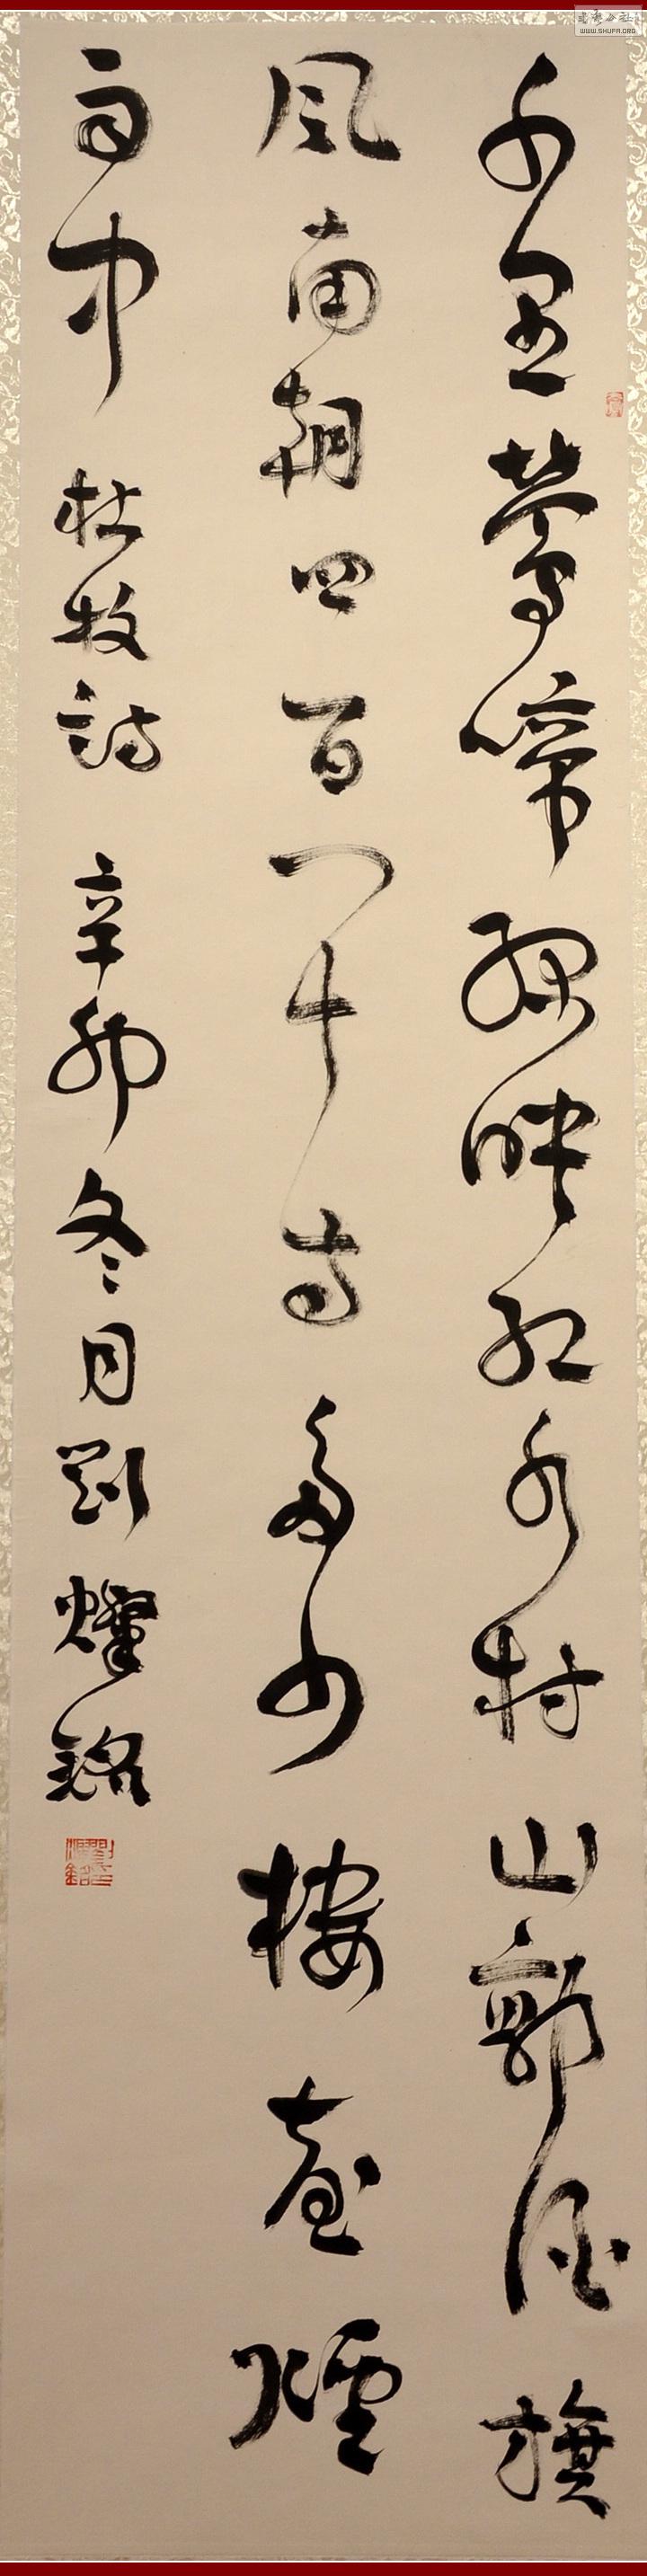 千里鶯啼綠映紅水村山郭酒旗
風南朝四百八十寺多少樓臺煙
雨中 杜牧詩 辛卯冬月劉燦銘
WWW.SHUFA.ORG